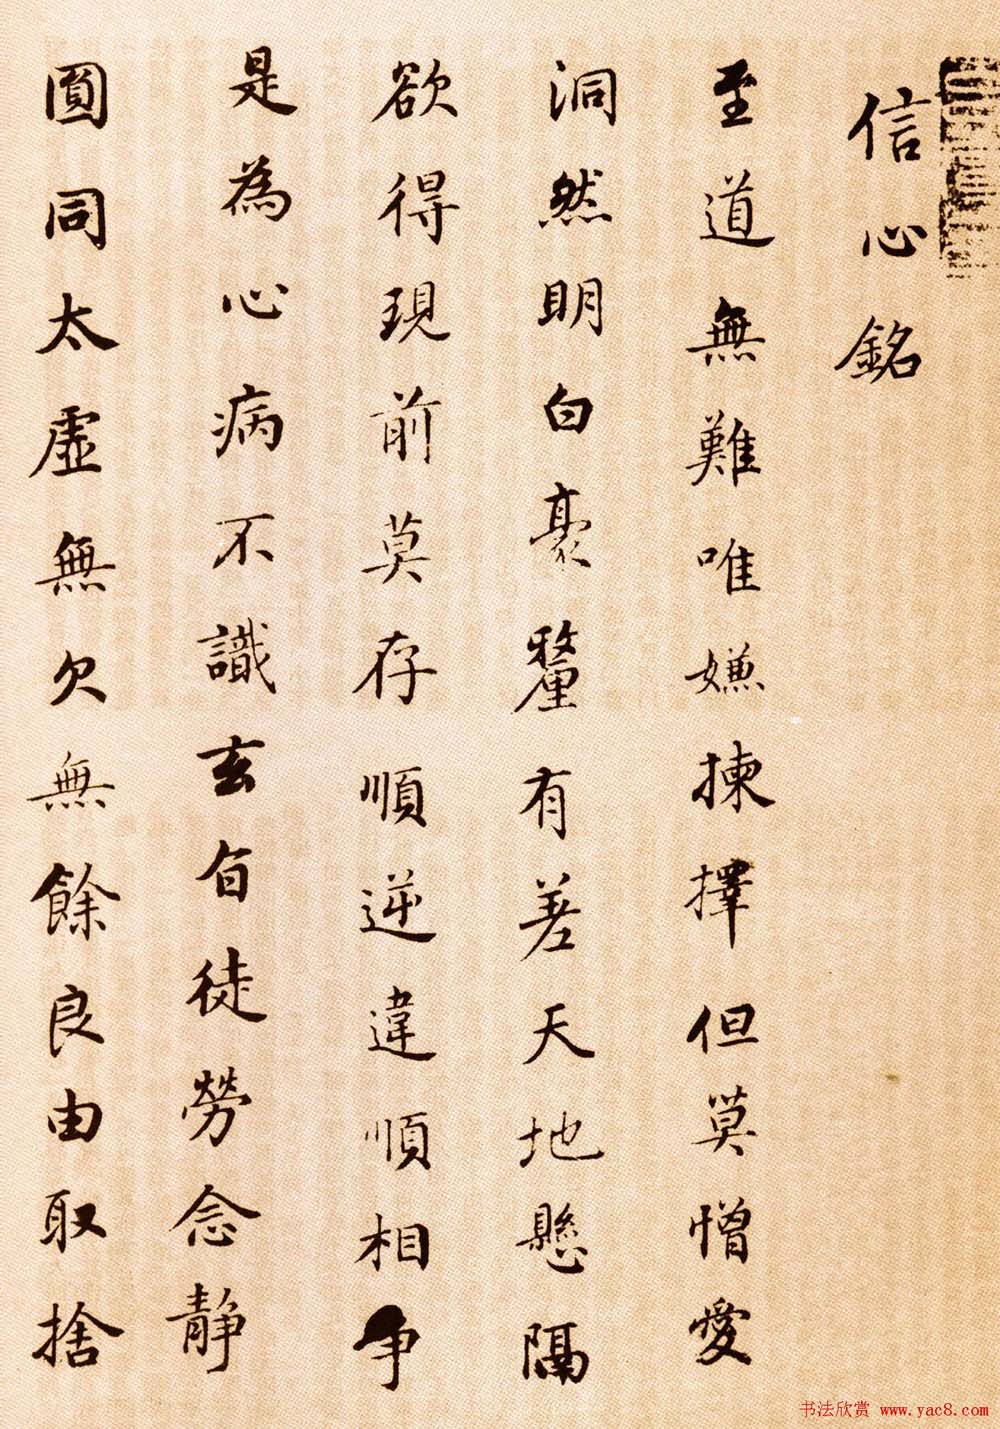 信心銘
至道無難唯嫌揀擇但莫憎愛
洞然明白豪釐有差天地懸隔
欲得現前莫存順逆違順相争
是為心病不識玄旨徒勞念静
圓同太虛無欠無餘良由取捨
书法欣赏 www.yac8.com